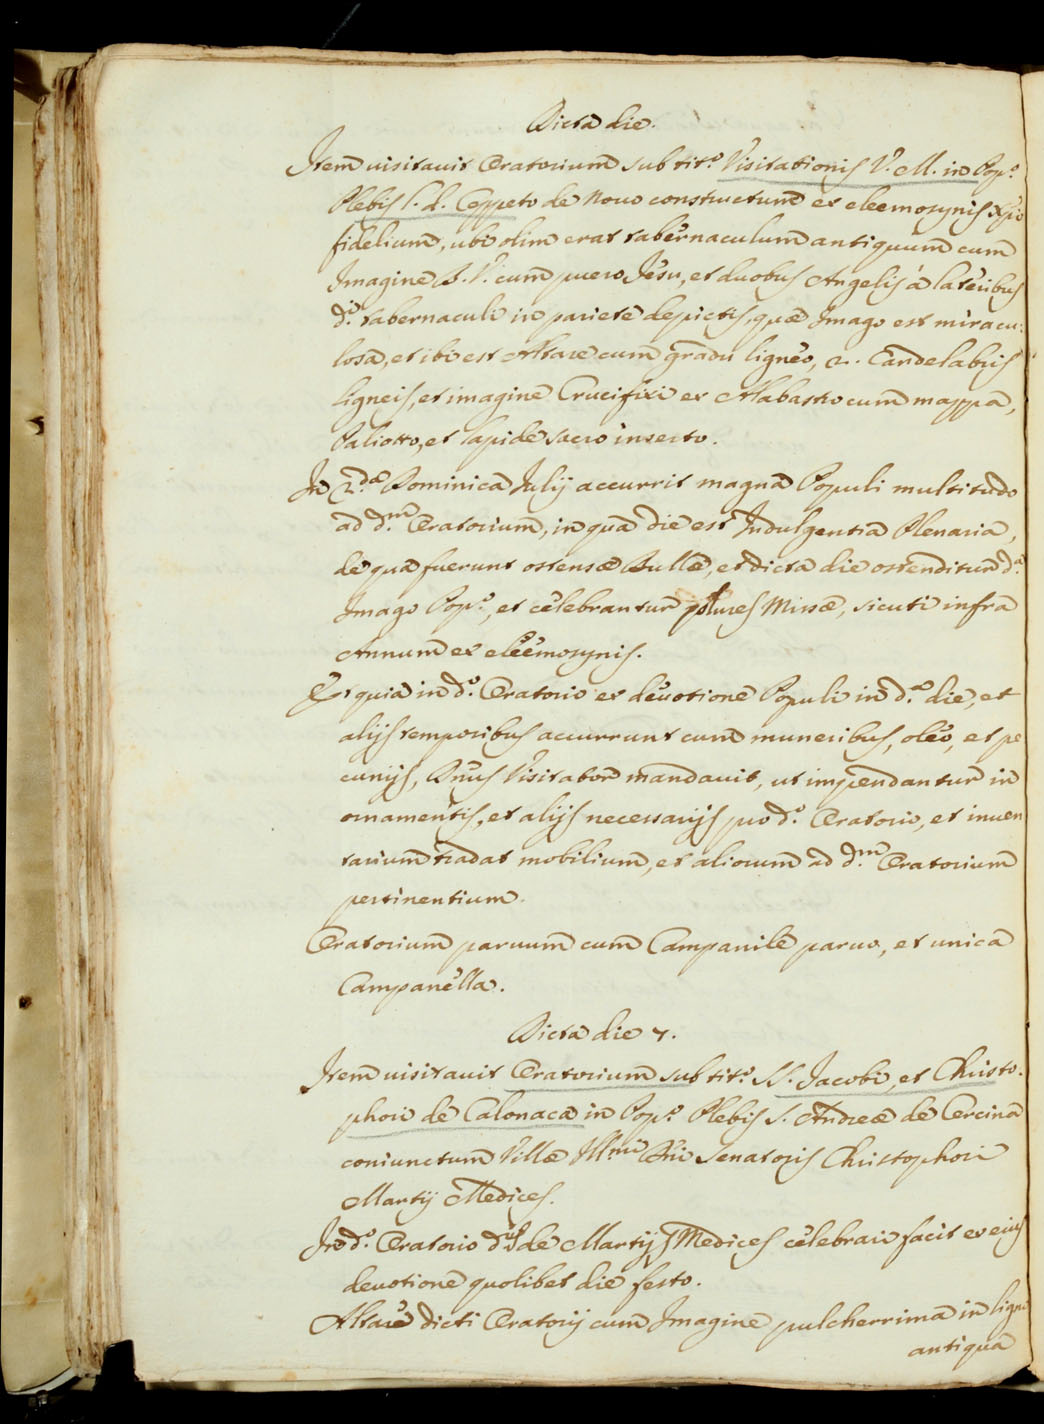 Dicta die.
Item uisitauit Oratorium sub tit.º Visitationis V. M. in Pop.º
Plebis S. d. Cepperto de nouo constructum ex eleemosynis Xp̄i
fidelium, ubi olim erat tabernaculum antiquum cum
Imagine B. V. cum puero Jesu, et duobus Angelis á lateribus
d.i tabernaculi in pariete depictis, quæ Imago est miracu:
losa, et ibi est Altare cum gradu ligneo, 2. Candelabris
ligneis, et imagine Crucifixi ex Alabastro cum mappa,
Paliotto, et lapide sacro inserto.
In 2.dæ Dominica Julij accurrit magna Populi multitudo
ad d.m Oratorium, in qua die est Indulgentia Plenaria,
de qua fuerunt ostensæ Bullæ, et dicta die ostenditur d.a
Imago Pop.º, et celebrantur plures Missæ, sicuti infra
Annum ex eleemosynis.
Et quia in d.º Oratorio ex deuotione Populi in d.a die, et
alijs temporibus accurrunt cum muneribus, oleo, et pe
cunijs, Dn̄us Visitator mandauit, ut impendantur in
ornamentis, et alijs necessarijs pro d.º Oratorio, et inuen
tarium tradat mobilium, et aliorum ad d.m Oratorium
pertinentium.
Oratorium paruum cum Campanile paruo, et unica
Campanella.
Dicta die 7.
Item uisitauit Oratorium sub tit.º SS. Jacobi, et Christo.
phori de Calonaca in Pop.º Plebis S. Andreæ de Cercina
coniunctum Villæ Ill.mi Dn̄i Senatoris Christophori
Martij Medices.
In d.º Oratorio d.us de Martijs Medices celebrari facit ex eius
deuotione quolibet die festo.
Altare dicti Oratorij cum Imagine pulcherrima in ligno
antiqua